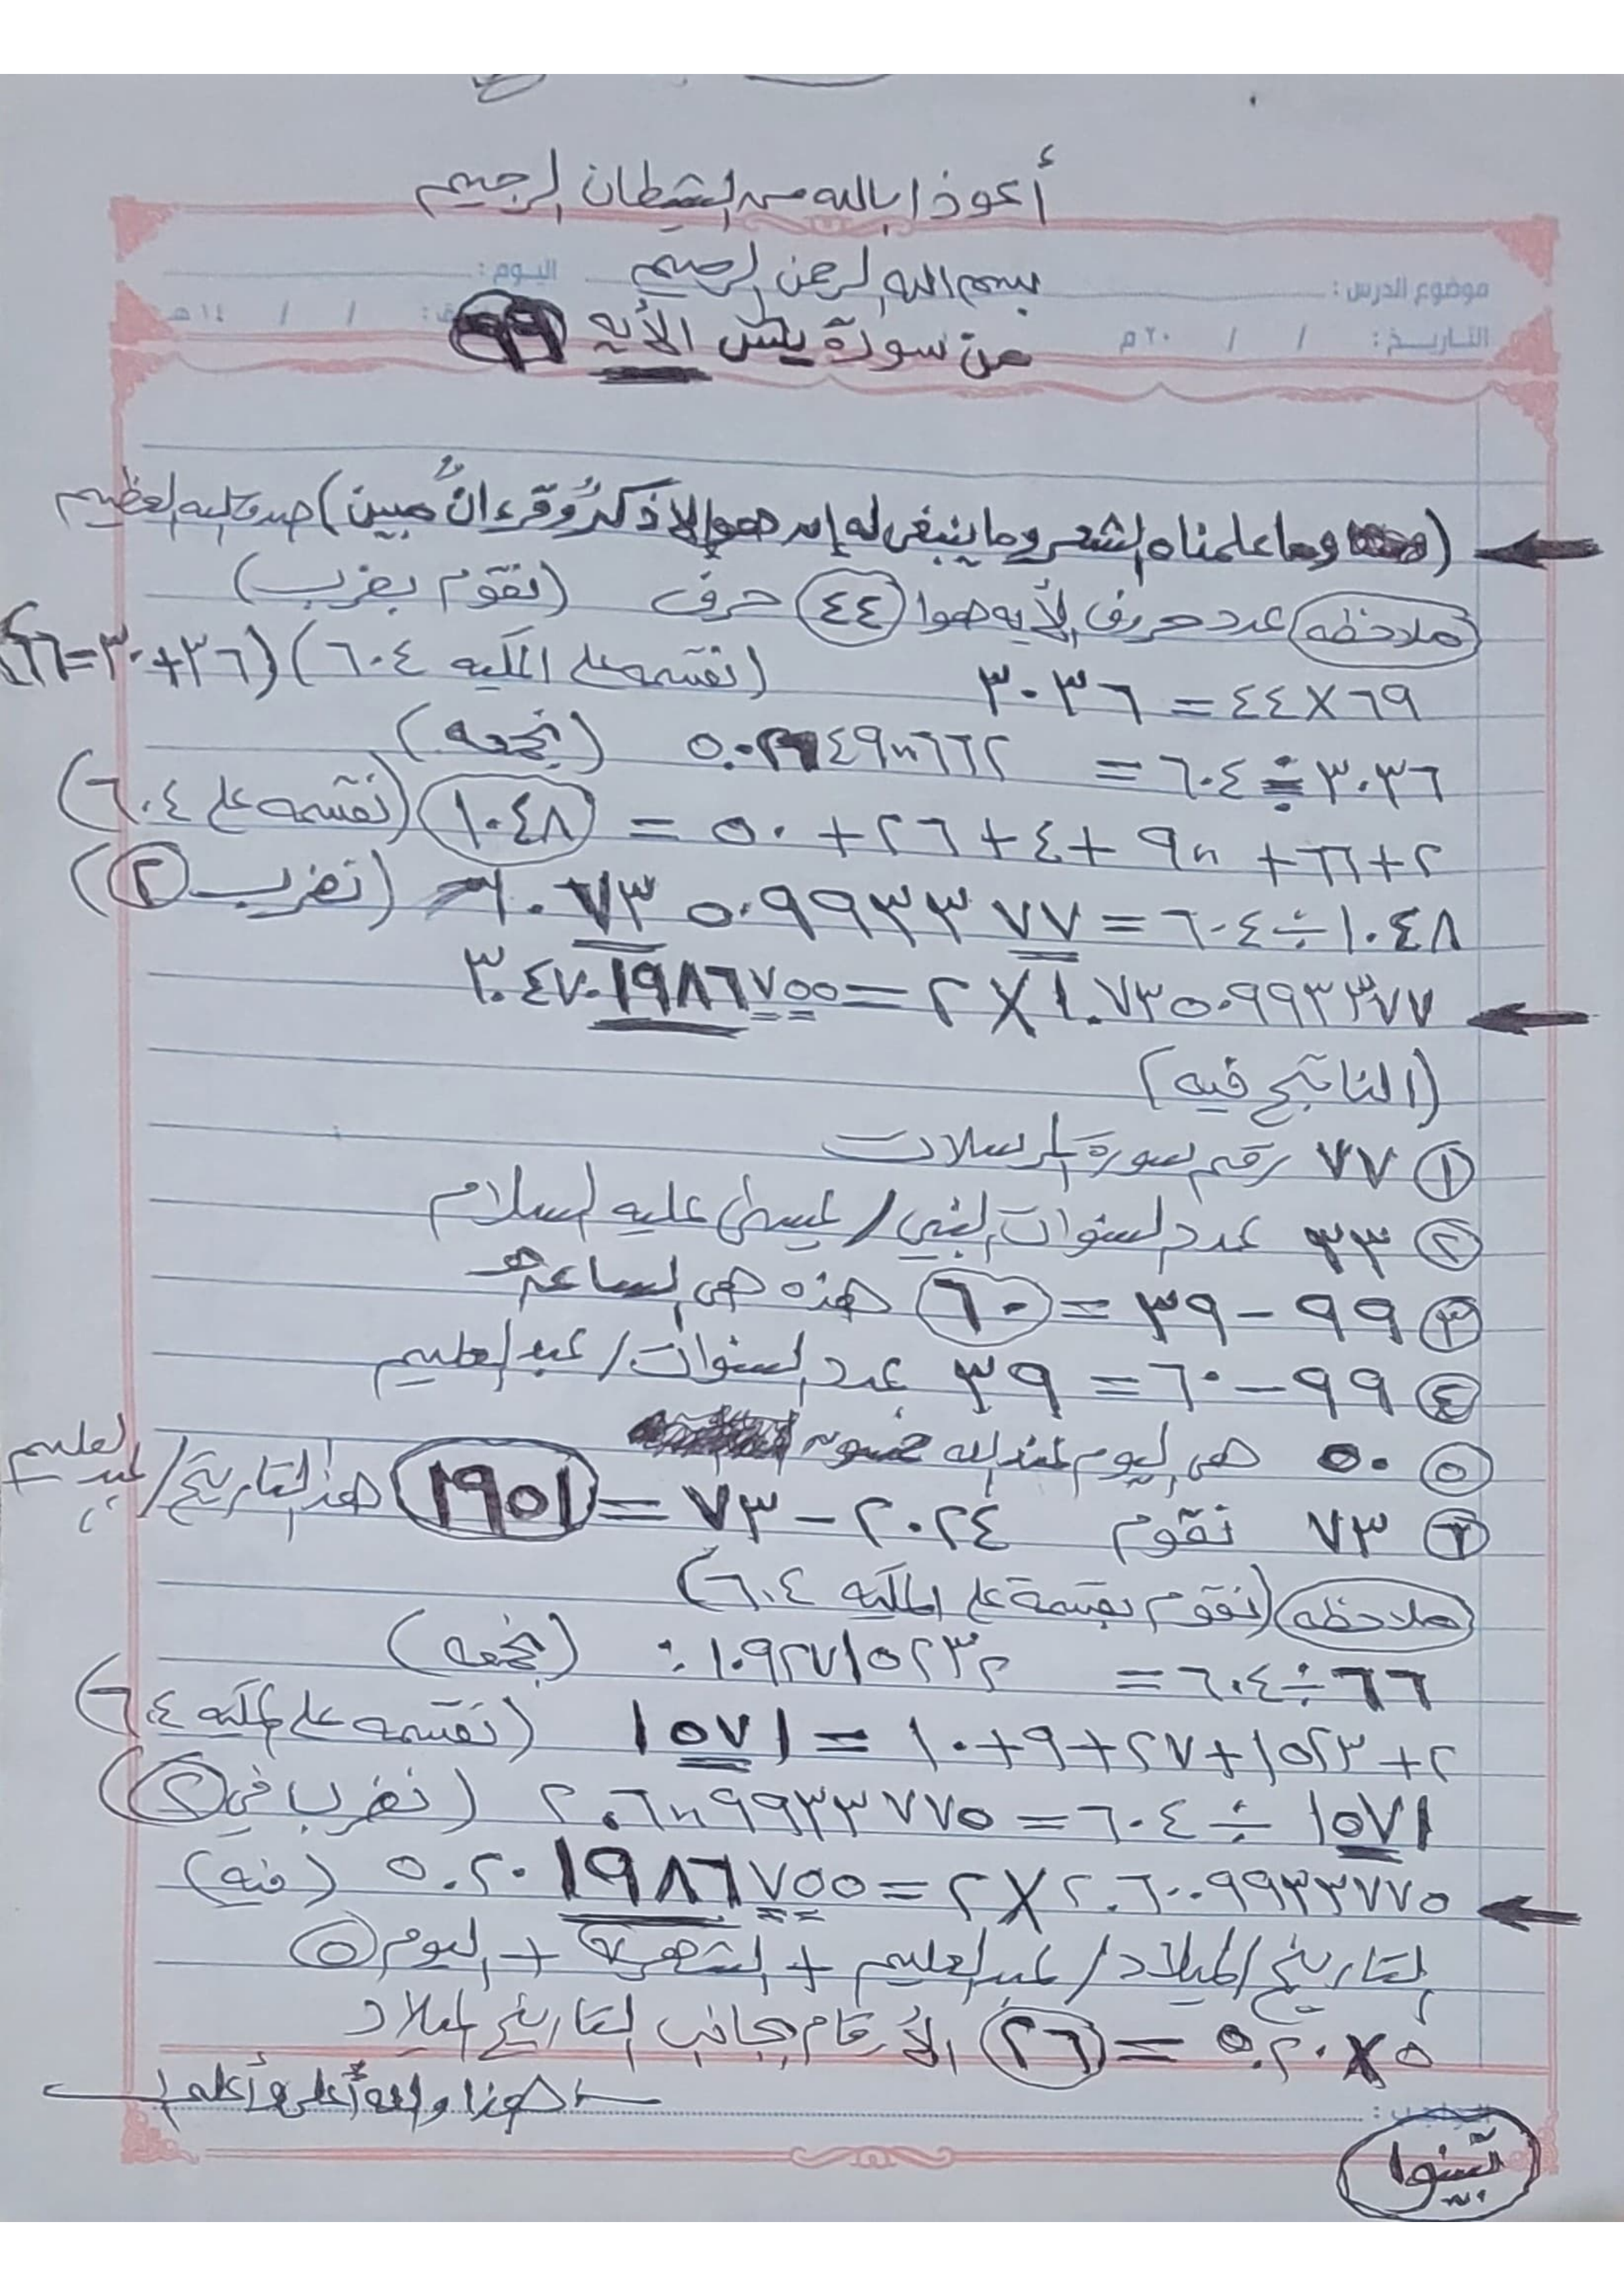 أعوذ ا بالله من الشيطان الرجيم
بسم الله الرحمن الرحيم
موضوع الدرس : اليوم :
التاريخ : / / ٢٠ م / / ١٤ هـ
من سورة يس الأيه ٦٩
( وما علمناه الشعر وما ينبغى له إن هو إلا ذكرٌ وقرءانٌ مبين ) صدق الله العظيم
ملاحظه عدد حروف الأيه هوا ٤٤ حرف (نقوم بضرب)
٤٤X٦٩ = ٣٠٣٦ (نقسمه على الملكيه ٦٠٤) (٣٦+٣٠=٦٦)
٣٠٣٦÷٦٠٤ = ٥.٠٢٦٤٩٠٠٦٦٢٢ (نجمعه)
= ٥٠+٢٦+٤+ +٦٦+٢ ١٠٤٨ (نقسمه على ٦٠٤)
١٠٤٨÷٦٠٤= ١.٧٣٥٠٩٩٣٣٧٧ (نضرب ٢)
١.٧٣٥٠٩٩٣٣٧٧ X ٢ = ٣.٤٧٠١٩٨٦٧٥٥
(الناتج فيه)
١ ٧٧ رقم سورة المرسلات
٢ ٣٣ عدد السنوات النبي / عيسى عليه السلام
٣ ٩٩ – ٣٩ = ٦٠ هذه هى الساعة
٤ ٩٩ – ٦٠ = ٣٩ عدد السنوات / عبد العليم
٥ ٥٠ هى اليوم عند الله خمسون
٦ ٧٣ نقوم ٢٠٢٤ – ٧٣ = ١٩٥١ هذا التاريخ / عبد العليم
ملاحظه (نقوم بقسمة على الملكيه ٦٠٤)
٦٦÷٦٠٤ = ٠.١٠٩٢٧١٥٢٣٢ (نجمعه)
٢+١٥٢٣+٢٧+٩+١٠ = ١٥٧١ (نقسمه على الملكيه ٦٠٤)
١٥٧١ ÷ ٦٠٤ = ٢.٦٠٠٩٩٣٣٧٧٥ (نضرب في ٢)
٢.٦٠٠٩٩٣٣٧٧٥ X ٢ = ٥.٢٠١٩٨٦٧٥٥ (فيه)
التاريخ الميلاد / عبد العليم + الشهر ٧ + اليوم ٥
٥ X ٥.٢٠ = ٢٦ الأرقام بجانب التاريخ الميلاد
هذا والله أعلى وأعلم
الواجب :
تبينوا